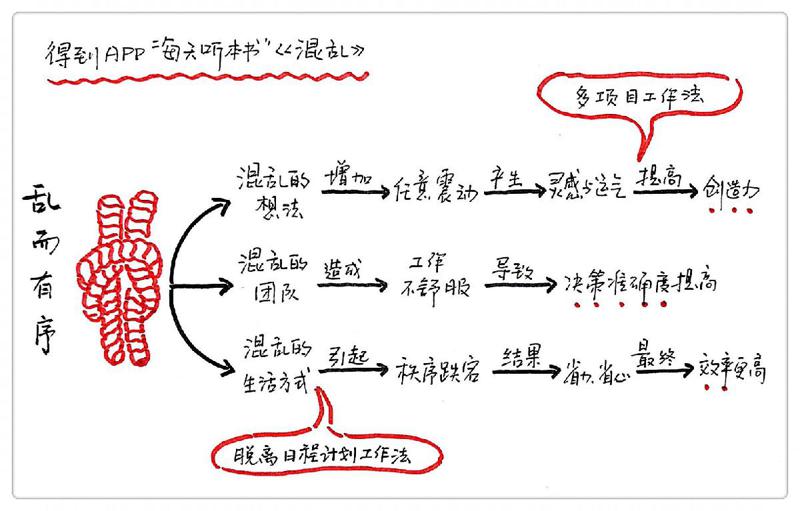 得到APP“每天听本书”《混乱》
多项目工作法
乱而有序
混乱的想法 增加 任意震动 产生 灵感与运气 提高 创造力
混乱的团队 造成 工作不舒服 导致 决策准确度提高
混乱的生活方式 引起 秩序跌宕 结果 省力、省心 最终 效率更高
脱离日程计划工作法